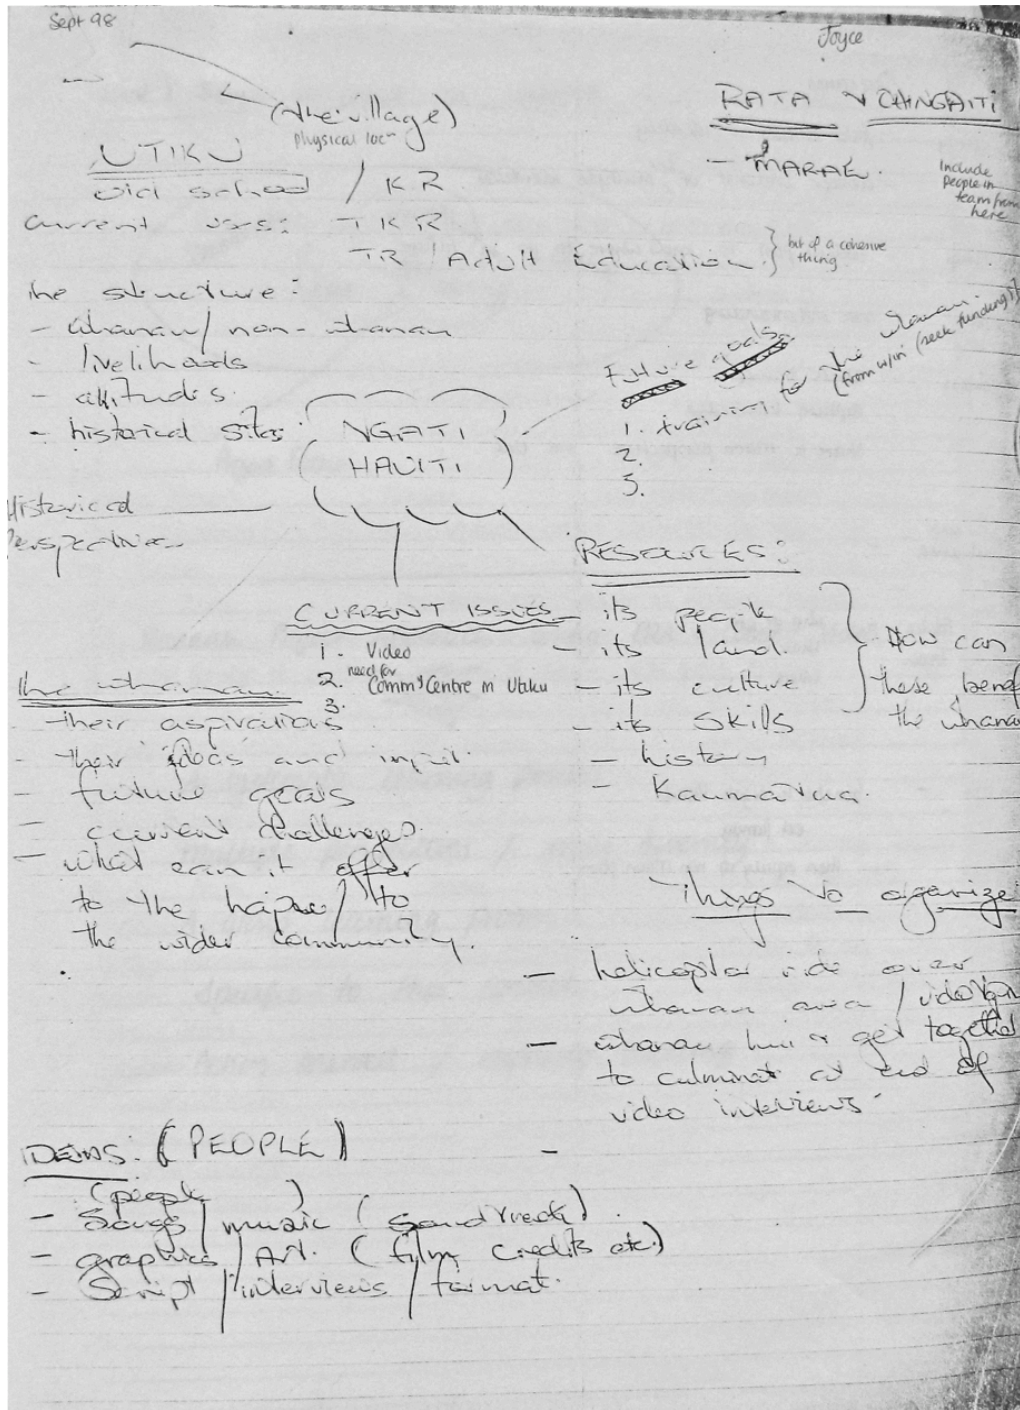 Sept 98
Joyce
(the village)
Physical locn
UTIKU
old school / KR
Current uses: TKR
TR / Adult Education
bit of a cohesive
thing
RATA & OHINGAITI
- MARAE.
Include
people in
team from
here
The structure:
- whanau / non-whanau
- livelihoods
- attitudes.
- historical sites.
NGATI
HAUITI
Historical
Perspectives
Future goals
1. training for the whanau.
(from w/in (seek funding)
2.
3.
RESOURCES:
- its people
- its land.
- its culture
- its skills
- history
- Kaumatua.
How can
these benef
the whanau
CURRENT ISSUES
1. Video
2. need for Comm'y Centre in Utiku
3.
The whanau.
- their aspirations
- their ideas and input.
- future goals
- current challenges.
- what can it offer
to the hapu / to
the wider community.
Things to organize
- helicopter ride over
whanau area /
- whanau hui & get together
to culminat at end of
video interviews -
-
IDEAS: (PEOPLE)
(people )
- Songs / music (soundtrack).
- graphics / Art. (film credits etc.)
- Script / interviews / format.